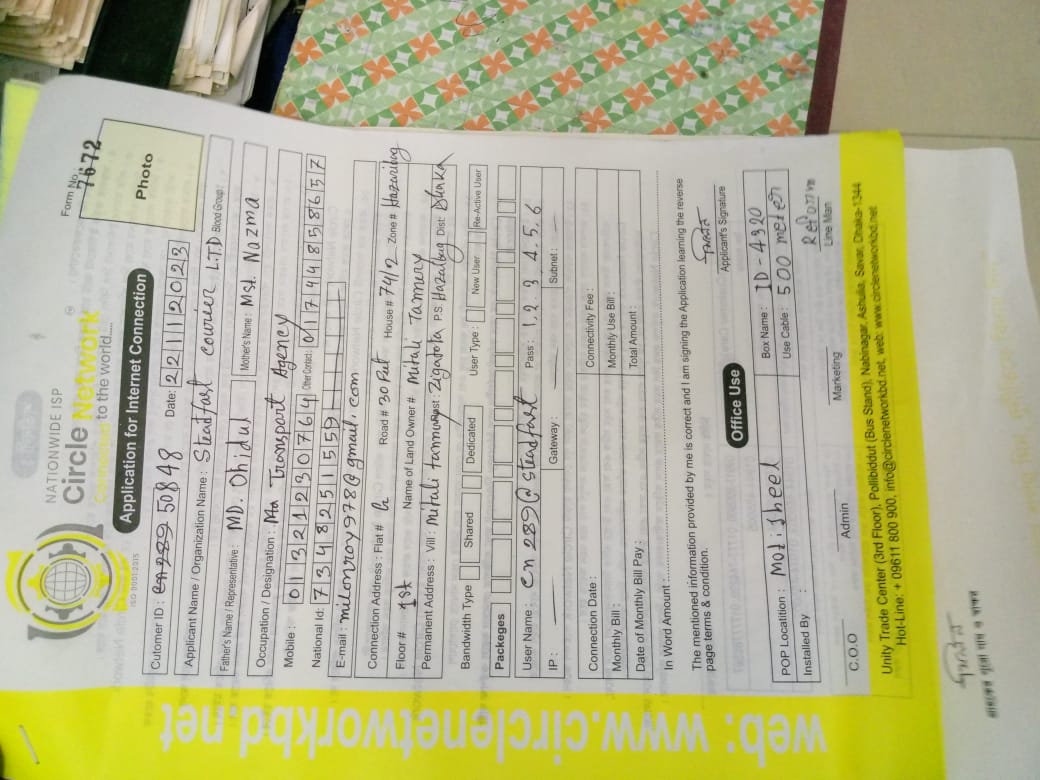 NATIONWIDE ISP
Circle Network
Connected to the world.....
ISO 9001:2015
Form No.
7672
Photo
Application for Internet Connection
Cutomer ID : cn289 50848 Date: 22112023
Applicant Name / Organization Name : Steadfast courier L.T.D Blood Group:
Father's Name / Representative : MD. Ohidul Mother's Name : Mst. Nazma
Occupation / Designation : Ma Transport Agency
Mobile : 01321230764 Other Contact : 01744858657
National Id: 7348251559
E-mail : milonroy978@gmail.com
Connection Address : Flat # Road # 30 Feet House # 74/2 Zone # Hazaribag
Floor # 1st Name of Land Owner # Mitali Tannery
Permanent Address : Vill : Mitali tannery Post: Zigatola P.S: Hazaribag Dist: Dhaka
Bandwidth Type Shared Dedicated User Type : New User Re-Active User
Packeges
User Name : cn289@steadfast Pass : 1,2 3,4,5,6
IP : Gateway : Subnet :
Connection Date : Connectivity Fee :
Monthly Bill : Monthly Use Bill :
Date of Monthly Bill Pay : Total Amount :
In Word Amount :
The mentioned information provided by me is correct and I am signing the Application learning the reverse
page terms & condition.
Applicant's Signature
Office Use
POP Location : Motijheel Box Name : ID-4320
Installed By : Use Cable : 500 meter
C.O.O Admin Marketing Line Man
Unity Trade Center (3rd Floor), Pollibiddut (Bus Stand), Nabinagar, Ashulia, Savar, Dhaka-1344
Hot-Line: + 09611 800 900, info@circlenetworkbd.net, web: www.circlenetworkbd.net
web: www.circlenetworkbd.net